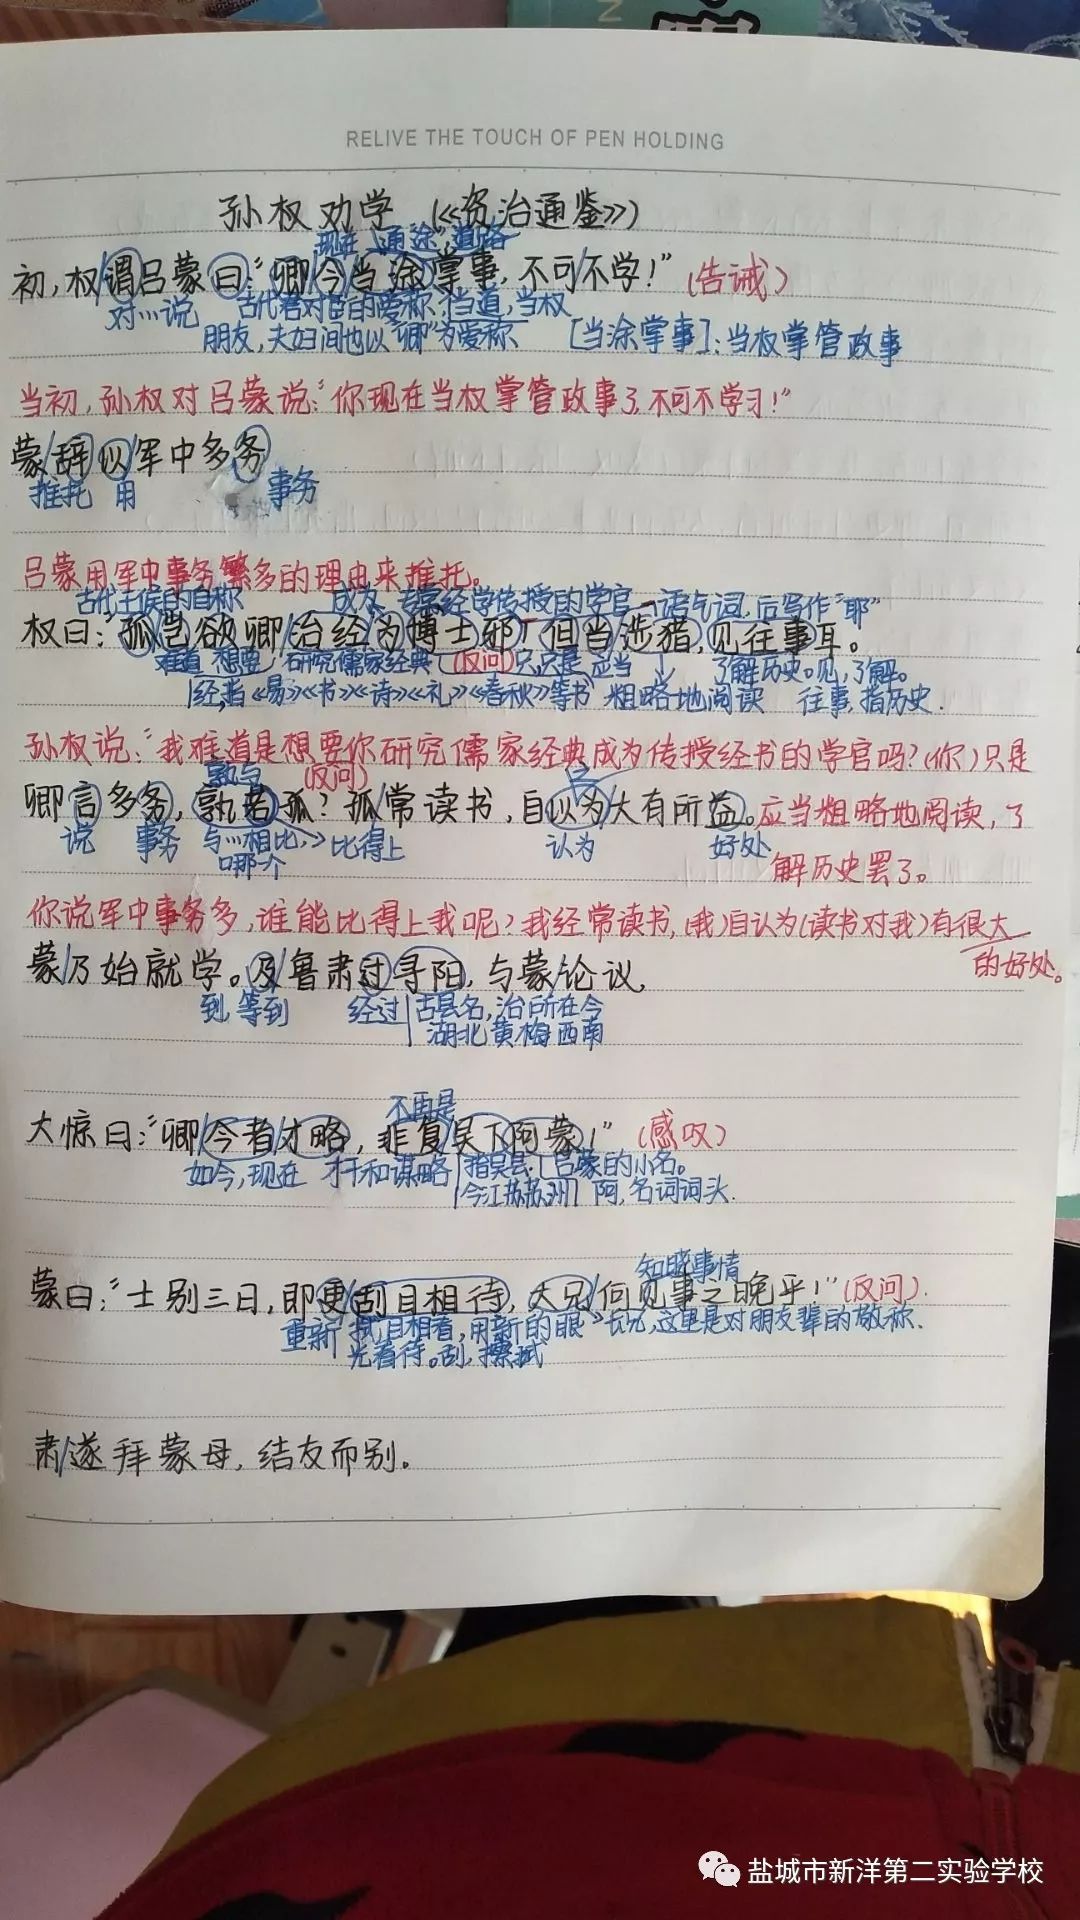 RELIVE THE TOUCH OF PEN HOLDING
孙权劝学 (《资治通鉴》)
现在 通“途”,道路
初,权/谓吕蒙曰:“卿今当涂掌事,不可/不学!” (告诫)
对…说 古代君对臣的爱称,当道,当权
朋友,夫妇间也以“卿”为爱称 [当涂掌事]:当权掌管政事
当初,孙权对吕蒙说:“你现在当权掌管政事了,不可不学习!”
蒙/辞/以/军中多务
推托 用 事务
吕蒙用军中事务繁多的理由来推托。
古代王侯的自称 成为 专掌经学传授的学官 语气词,后写作“耶”
权曰:“孤岂欲卿/治经/为博士邪!但当涉猎,见往事耳。
难道 想要 研究儒家经典 (反问)只,只是 应当 ↓ 了解历史。见,了解。
经,指《易》《书》《诗》《礼》《春秋》等书 粗略地阅读 往事,指历史.
孙权说:“我难道是想要你研究儒家经典成为传授经书的学官吗?(你)只是
孰与 (反问)
卿言多务,孰若孤?孤常读书,自以为大有所益。应当粗略地阅读,了
说 事务 与…相比,> 比得上 认为 好处
哪个 解历史罢了。
你说军中事务多,谁能比得上我呢?我经常读书,(我)自认为(读书对我)有很大
蒙/乃始就学。及/鲁肃过寻阳,与蒙/论议, 的好处。
到,等到 经过 古县名,治所在今
湖北黄梅西南
不再是
大惊曰:“卿/今者/才略,非复吴下阿蒙!” (感叹)
如今,现在 才干和谋略 指吴县, 吕蒙的小名。
今江苏苏州 阿,名词词头.
知晓事情
蒙曰:“士别三日,即更/刮目相待,大兄/何见事之晚乎!”(反问).
重新 拭目相看,用新的眼 长兄,这里是对朋友辈的敬称.
光看待。刮,擦拭
肃/遂拜蒙母,结友而别。
盐城市新洋第二实验学校